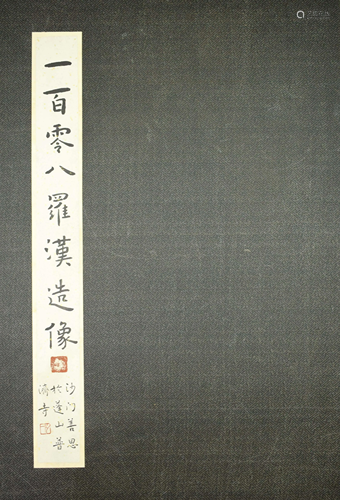 一百零八羅漢造像
沙门善思
於蓮山普
濟寺